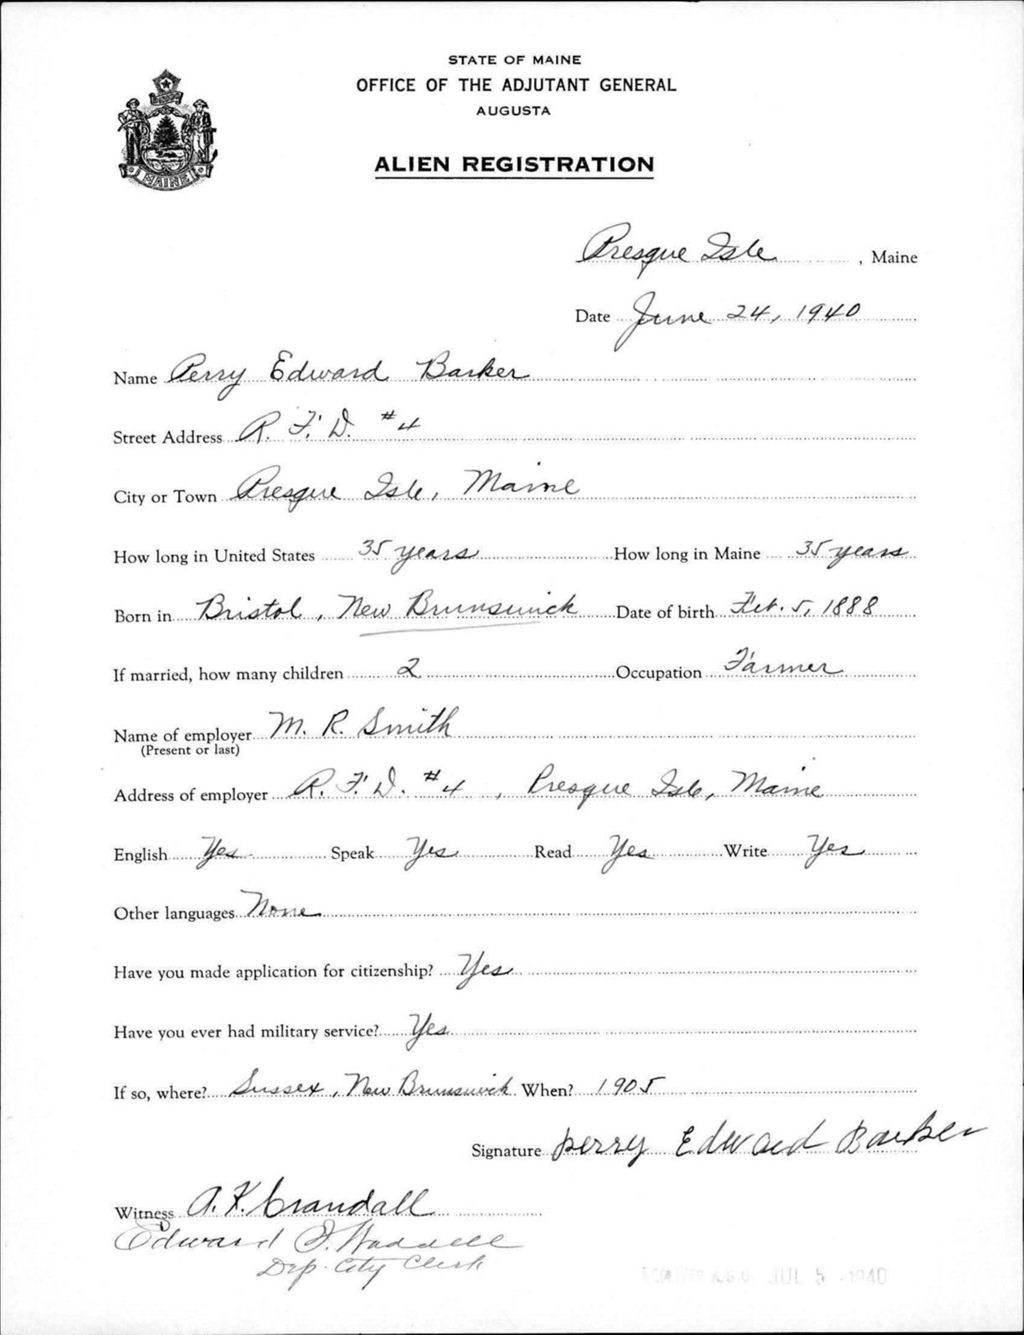 STATE OF MAINE
OFFICE OF THE ADJUTANT GENERAL
AUGUSTA
ALIEN REGISTRATION
MAINE
Presque Isle, Maine
Date June 24, 1940
Name Perry Edward Barker
Street Address R. F. D. #4
City or Town Presque Isle, Maine
How long in United States 35 years How long in Maine 35 years
Born in Bristol, New Brunswick Date of birth Feb. 5, 1888
If married, how many children 2 Occupation Farmer
Name of employer M. R. Smith
(Present or last)
Address of employer R. F. D. #4, Presque Isle, Maine
English Yes Speak Yes Read Yes Write Yes
Other languages None
Have you made application for citizenship? Yes
Have you ever had military service? Yes
If so, where? Sussex, New Brunswick When? 1905
Signature Perry Edward Barker
Witness A. F. Crandall
Edward J. Waddell
Dep. City Clerk
A.G.O. JUL 5 1940